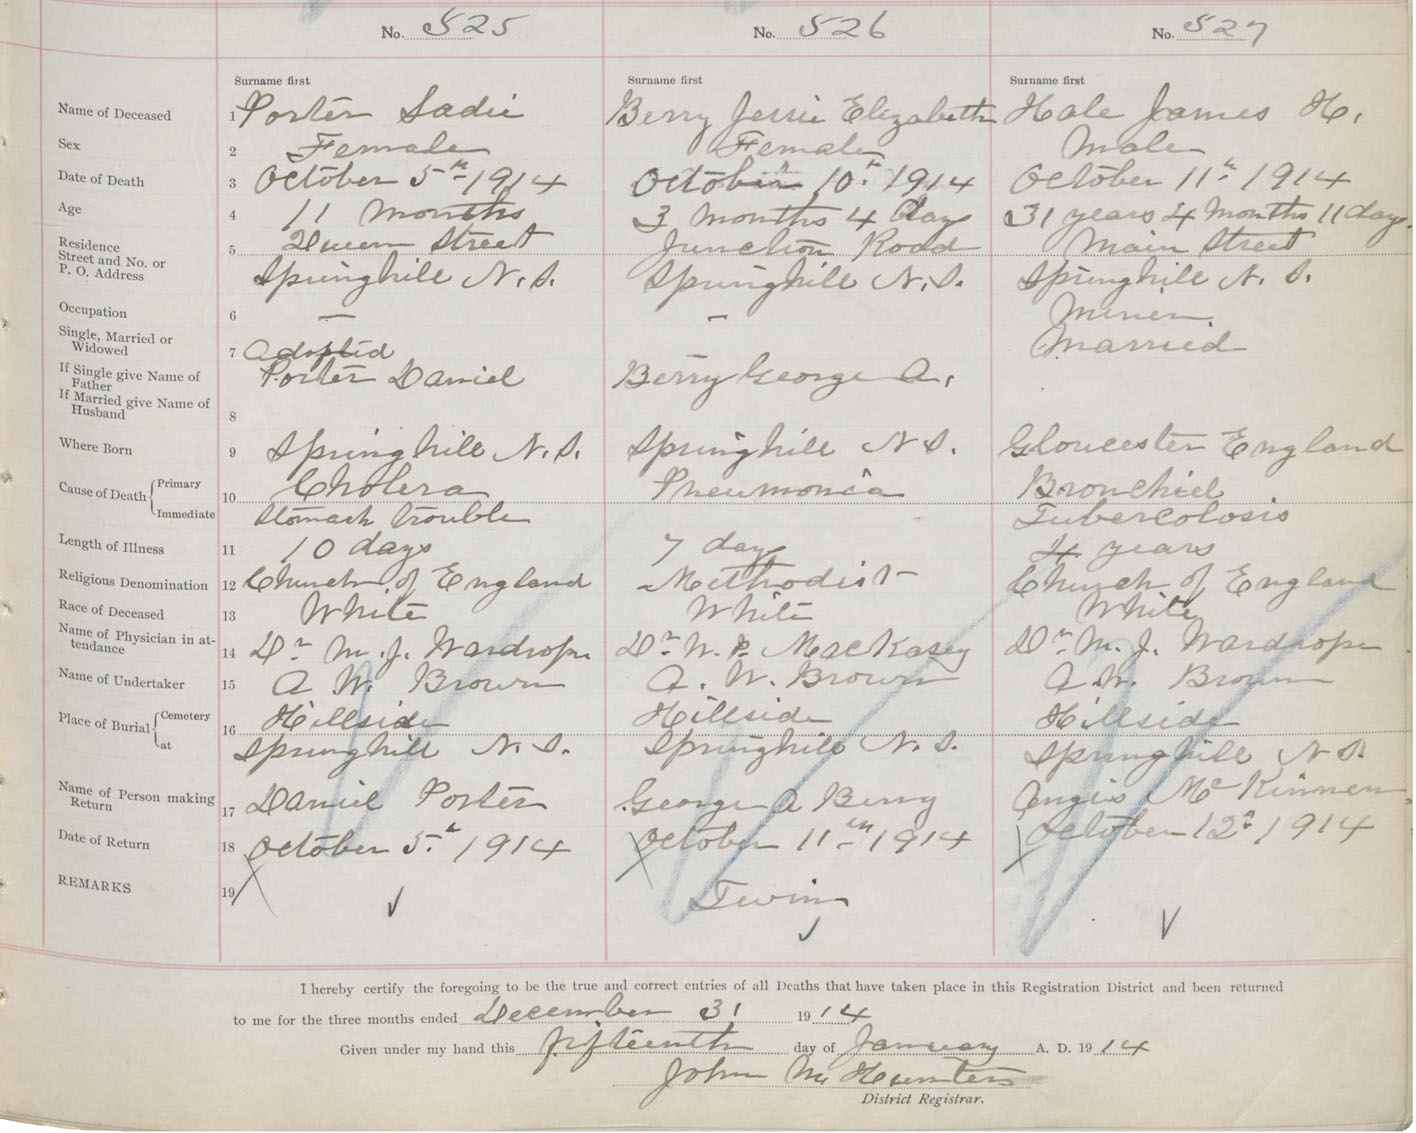 No. 525 No. 526 No. 527
Surname first Surname first Surname first
Name of Deceased 1 Porter Sadie Berry Jessie Elizabeth Hale James H.
Sex 2 Female Female Male
Date of Death 3 October 5th 1914 October 10th 1914 October 11th 1914
Age 4 11 Months 3 Months 4 days 31 years 4 Months 11 days
Residence 5 Queen Street Junction Road Main Street
Street and No. or
P. O. Address Springhill N.S. Springhill N.S. Springhill N.S.
Occupation 6 — — Miner
Single, Married or
Widowed 7 Adopted Married
If Single give Name of
Father Porter Daniel Berry George A.
If Married give Name of
Husband 8
Where Born 9 Springhill N.S. Springhill N.S. Gloucester England
Cause of Death Primary 10 Cholera Pneumonia Bronchiel
Immediate Stomach trouble Tubercolosis
Length of Illness 11 10 days 7 days 4 years
Religious Denomination 12 Church of England Methodist Church of England
Race of Deceased 13 White White White
Name of Physician in at-
tendance 14 Dr M. J. Wardrope Dr W. P. MacKasey Dr M. J. Wardrope
Name of Undertaker 15 A. W. Brown A. W. Brown A. W. Brown
Place of Burial Cemetery 16 Hillside Hillside Hillside
at Springhill N.S. Springhill N.S. Springhill N.S.
Name of Person making
Return 17 Daniel Porter George A Berry Angis McKinnen
Date of Return 18 October 5th 1914 October 11th 1914 October 12th 1914
REMARKS 19 Twin
I hereby certify the foregoing to be the true and correct entries of all Deaths that have taken place in this Registration District and been returned
to me for the three months ended December 31 1914
Given under my hand this fifteenth day of January A. D. 1914
John M Hunter
District Registrar.